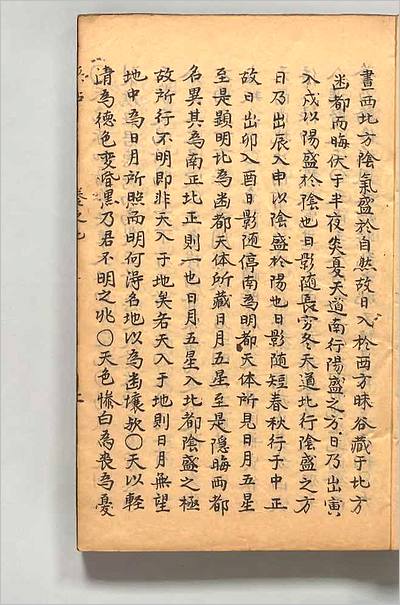 晝西北方陰氣盛於自然故日入於西方昧谷藏于北方
幽都而晦伏于半夜矣夏天道南行陽盛之方日乃出寅
入戌以陽盛於陰也日影隨長穷冬天道北行陰盛之方
日乃出辰入申以陰盛於陽也日影隨短春秋行于中正
故日出卯入酉日影随停南為明都天体所見日月五星
至是顕明北為幽都天体所藏日月五星至是隱晦両都
名異其為南正北正則一也日月五星入北都陰盛之極
故所行不明即非天入于地矣若天入于地則日月無望
地中為日月所照而明何得名地以為幽壤㢤〇天以軽
請為德色変昏黒乃君不明之兆〇天色慘白為喪為憂